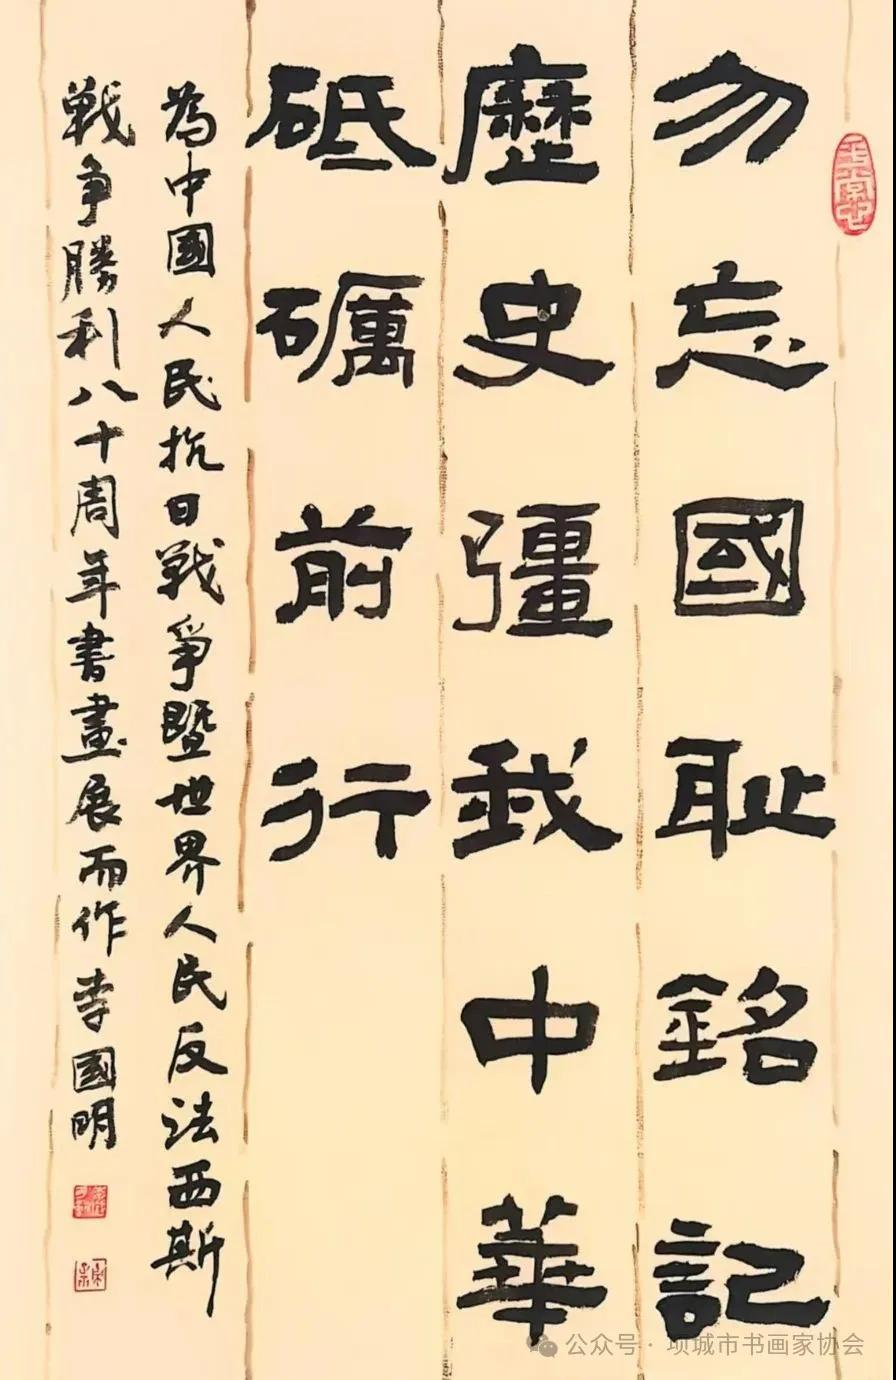 勿忘國耻銘記
歷史彊我中華
砥礪前行
為中國人民抗日戰爭暨世界人民反法西斯
戰争勝利八十周年書畫展而作李國明
公众号·项城市书画家协会